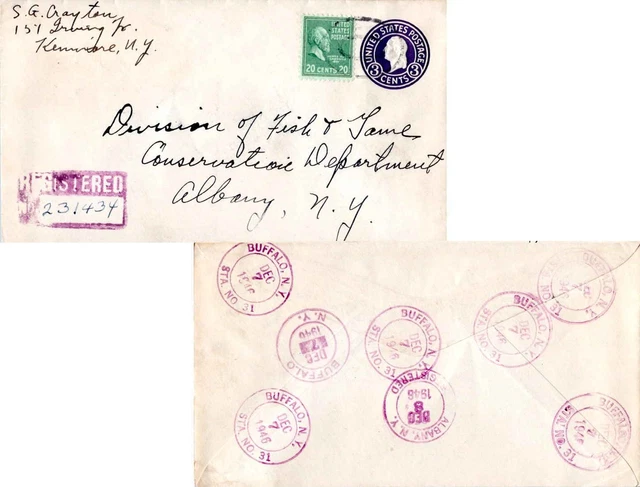 S. G. Crayton
151 Irving Tr.
Kenmore, N.Y.
UNITED STATES POSTAGE
20 CENTS 20
UNITED STATES POSTAGE
3 CENTS 3
Division of Fish & Game
Conservation Department
Albany, N.Y.
REGISTERED
231434
BUFFALO, N.Y.
DEC
7
1946
STA. NO. 31
BUFFALO, N.Y.
DEC
7
1946
STA. NO. 31
BUFFALO
N.Y.
DEC
7
1946
BUFFALO, N.Y.
DEC
7
1946
STA. NO. 31
BUFFALO, N.Y.
DEC
7
1946
STA. NO. 31
REGISTERED
ALBANY, N.Y.
DEC
8
1946
BUFFALO, N.Y.
DEC
7
1946
STA. NO. 31
BUFFALO
1946
STA. NO. 31